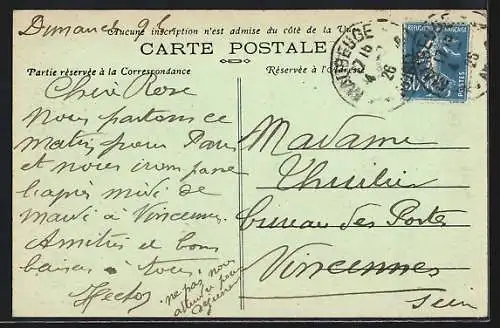 Dimanche 9 h
Aucune inscription n'est admise du côté de la Vue
CARTE POSTALE
Partie réservée à la Correspondance
Réservée à l'Adresse
MAUBEUGE
26
Chère Rose
Nous partons ce
matin pour Paris
et nous irons passer
l'après midi de
mardi à Vincennes.
Amitiés et bons
baisers à tous
Hector
ne pas nous
attendre pour
déjeuner
Madame
Thuilier
bureau des Postes
Vincennes
Seine